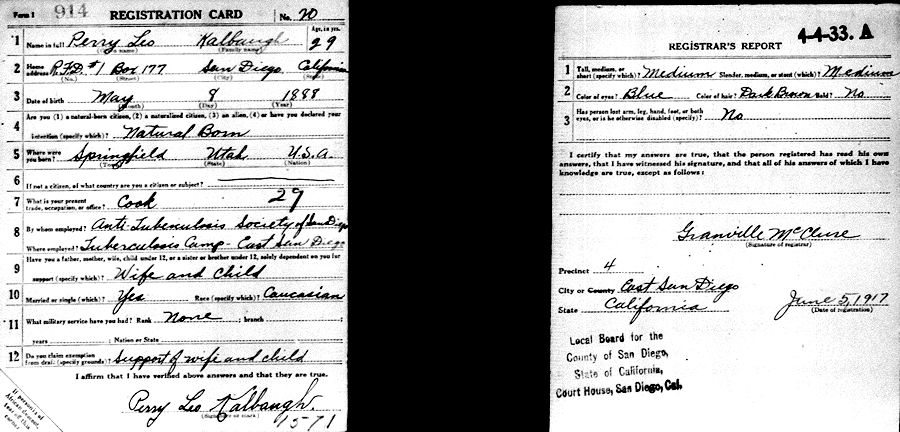 Form 1 914 REGISTRATION CARD No. 20
1 Name in full Perry Leo Kalbaugh Age, in yrs. 29
(Given name) (Family name)
2 Home address R.F.D. #1 Box 177 San Diego California
(No.) (Street) (City) (State)
3 Date of birth May 8 1888
(Month) (Day) (Year)
4 Are you (1) a natural-born citizen, (2) a naturalized citizen, (3) an alien, (4) or have you declared your
intention (specify which)? Natural Born
5 Where were you born? Springfield Utah U.S.A.
(Town) (State) (Nation)
6 If not a citizen, of what country are you a citizen or subject?
7 What is your present trade, occupation, or office? Cook 29
8 By whom employed? Anti-Tuberculosis Society of San Diego
Where employed? Tuberculosis Camp - East San Diego
9 Have you a father, mother, wife, child under 12, or a sister or brother under 12, solely dependent on you for
support (specify which)? Wife and Child
10 Married or single (which)? Yes Race (specify which)? Caucasian
11 What military service have you had? Rank None ; branch
years ; Nation or State
12 Do you claim exemption from draft (specify grounds)? Support of wife and child
I affirm that I have verified above answers and that they are true.
Perry Leo Kalbaugh.
(Signature or mark)
1571
If person is of
African descent,
tear off this
corner
4-4-33. A
REGISTRAR'S REPORT
1 Tall, medium, or short (specify which)? Medium Slender, medium, or stout (which)? Medium
2 Color of eyes? Blue Color of hair? Dark Brown Bald? No
3 Has person lost arm, leg, hand, foot, or both
eyes, or is he otherwise disabled (specify)? No
I certify that my answers are true, that the person registered has read his own
answers, that I have witnessed his signature, and that all of his answers of which I
have knowledge are true, except as follows:
Granville McClure
(Signature of registrar)
Precinct 4
City or County East San Diego
State California June 5, 1917
(Date of registration)
Local Board for the
County of San Diego,
State of California,
Court House, San Diego, Cal.